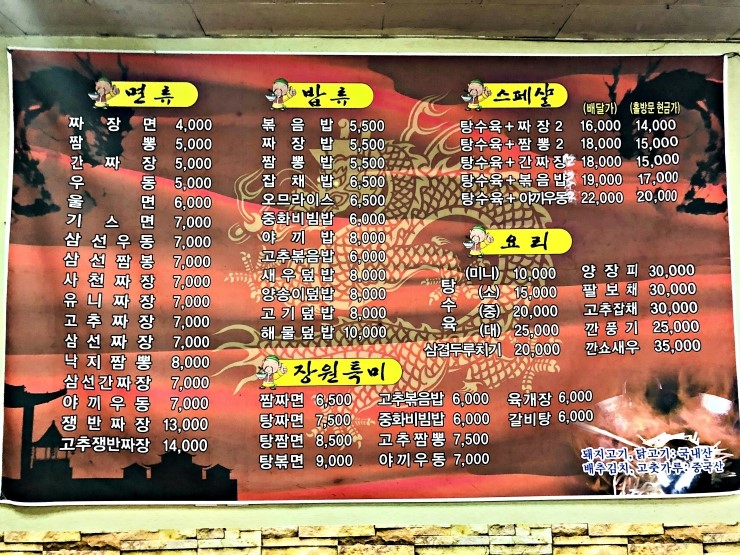 면류
짜장면 4,000
짬뽕 5,000
간짜장 5,000
우동 5,000
울면 6,000
기스면 7,000
삼선우동 7,000
삼선짬봉 7,000
사천짜장 7,000
유니짜장 7,000
고추짜장 7,000
삼선짜장 7,000
낙지짬뽕 8,000
삼선간짜장 7,000
야끼우동 7,000
쟁반짜장 13,000
고추쟁반짜장 14,000
밥류
볶음밥 5,500
짜장밥 5,500
짬뽕밥 5,500
잡채밥 6,500
오므라이스 6,500
중화비빔밥 6,000
야끼밥 8,000
고추볶음밥 6,000
새우덮밥 8,000
양송이덮밥 8,000
고기덮밥 8,000
해물덮밥 10,000
스페샬 (배달가) (홀방문 현금가)
탕수육+짜장2 16,000 14,000
탕수육+짬뽕2 18,000 15,000
탕수육+간짜장2 18,000 15,000
탕수육+볶음밥2 19,000 17,000
탕수육+야끼우동2 22,000 20,000
요리
탕수육 (미니) 10,000
(소) 15,000
(중) 20,000
(대) 25,000
삼겹두루치기 20,000
양장피 30,000
팔보채 30,000
고추잡채 30,000
깐풍기 25,000
깐쇼새우 35,000
장원특미
짬짜면 6,500
탕짜면 7,500
탕짬면 8,500
탕볶면 9,000
고추볶음밥 6,000
중화비빔밥 6,000
고추짬뽕 7,500
야끼우동 7,000
육개장 6,000
갈비탕 6,000
돼지고기, 닭고기:국내산
배추김치, 고춧가루:중국산